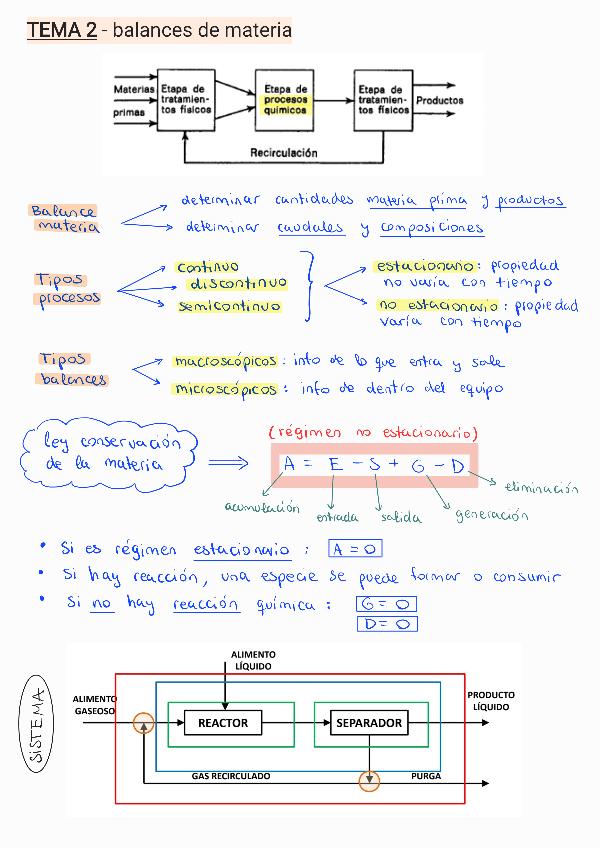 TEMA 2 - balances de materia
Materias
primas
Etapa de
tratamien-
tos físicos
Etapa de
procesos
químicos
Etapa de
tratamien-
tos físicos
Productos
Recirculación
Balance
materia
determinar cantidades materia prima y productos
determinar caudales y composiciones
Tipos
procesos
continuo
discontinuo
semicontinuo
estacionario: propiedad
no varía con tiempo
no estacionario: propiedad
varía con tiempo
Tipos
balances
macroscópicos: info de lo que entra y sale
microscópicos: info de dentro del equipo
ley conservación
de la materia
(régimen no estacionario)
A = E - S + G - D
acumulación
entrada
salida
generación
eliminación
• Si es régimen estacionario: A = 0
• Si hay reacción, una especie se puede formar o consumir
• Si no hay reacción química: G = 0
D = 0
SISTEMA
ALIMENTO
LÍQUIDO
ALIMENTO
GASEOSO
REACTOR
SEPARADOR
PRODUCTO
LÍQUIDO
GAS RECIRCULADO
PURGA